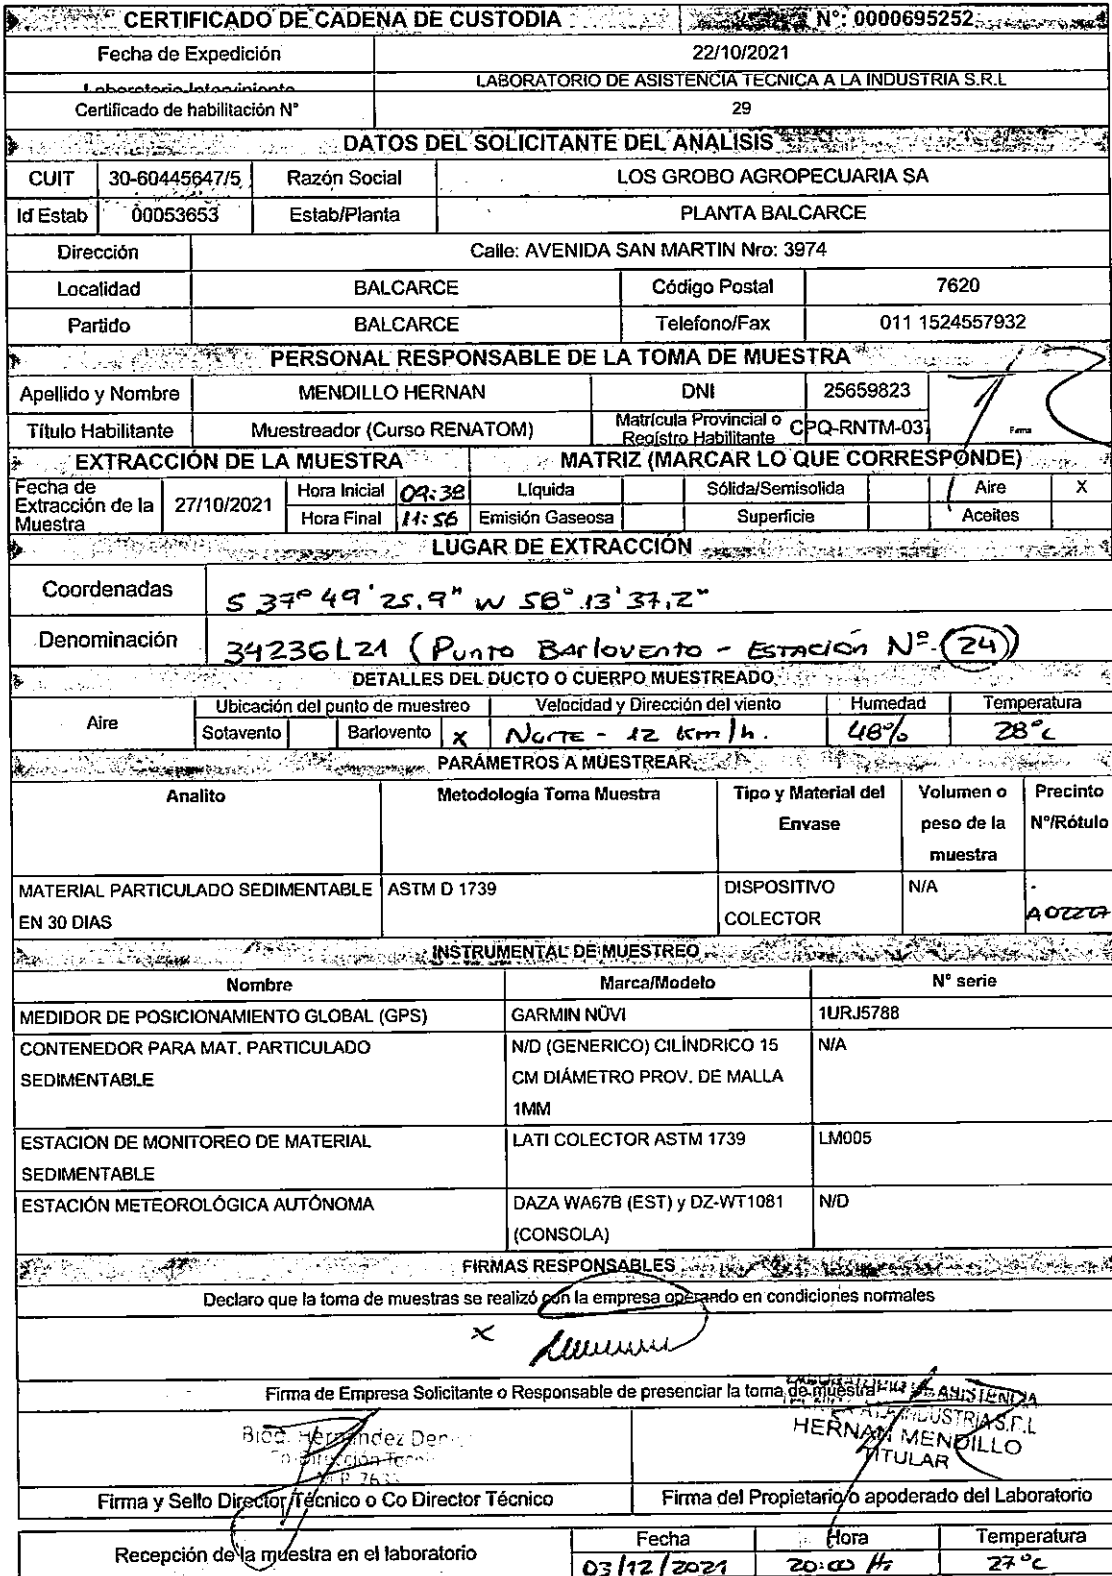 CERTIFICADO DE CADENA DE CUSTODIA N°: 0000695252
Fecha de Expedición 22/10/2021
Laboratorio Interviniente LABORATORIO DE ASISTENCIA TECNICA A LA INDUSTRIA S.R.L
Certificado de habilitación N° 29
DATOS DEL SOLICITANTE DEL ANALISIS
CUIT 30-60445647/5 Razón Social LOS GROBO AGROPECUARIA SA
Id Estab 00053653 Estab/Planta PLANTA BALCARCE
Dirección Calle: AVENIDA SAN MARTIN Nro: 3974
Localidad BALCARCE Código Postal 7620
Partido BALCARCE Telefono/Fax 011 1524557932
PERSONAL RESPONSABLE DE LA TOMA DE MUESTRA
Apellido y Nombre MENDILLO HERNAN DNI 25659823
Título Habilitante Muestreador (Curso RENATOM) Matrícula Provincial o Registro Habilitante CPQ-RNTM-037 Firma
EXTRACCIÓN DE LA MUESTRA MATRIZ (MARCAR LO QUE CORRESPONDE)
Fecha de Extracción de la Muestra 27/10/2021 Hora Inicial 09:38 Líquida Sólida/Semisolida Aire X
Hora Final 11:56 Emisión Gaseosa Superficie Aceites
LUGAR DE EXTRACCIÓN
Coordenadas S 37° 49' 25.9" W 58° 13' 37,2"
Denominación 34236L21 (Punto Barlovento - Estación N° (24))
DETALLES DEL DUCTO O CUERPO MUESTREADO
Aire Ubicación del punto de muestreo Velocidad y Dirección del viento Humedad Temperatura
Sotavento Barlovento X Norte - 12 Km/h. 48% 28°C
PARÁMETROS A MUESTREAR
Analito Metodología Toma Muestra Tipo y Material del Envase Volumen o peso de la muestra Precinto N°/Rótulo
MATERIAL PARTICULADO SEDIMENTABLE EN 30 DIAS ASTM D 1739 DISPOSITIVO COLECTOR N/A - A02227
INSTRUMENTAL DE MUESTREO
Nombre Marca/Modelo N° serie
MEDIDOR DE POSICIONAMIENTO GLOBAL (GPS) GARMIN NÜVI 1URJ5788
CONTENEDOR PARA MAT. PARTICULADO SEDIMENTABLE N/D (GENERICO) CILÍNDRICO 15 CM DIÁMETRO PROV. DE MALLA 1MM N/A
ESTACION DE MONITOREO DE MATERIAL SEDIMENTABLE LATI COLECTOR ASTM 1739 LM005
ESTACIÓN METEOROLÓGICA AUTÓNOMA DAZA WA67B (EST) y DZ-WT1081 (CONSOLA) N/D
FIRMAS RESPONSABLES
Declaro que la toma de muestras se realizó con la empresa operando en condiciones normales
x
Firma de Empresa Solicitante o Responsable de presenciar la toma de muestra
Hernández
HERNAN MENDILLO
TITULAR
Firma y Sello Director Técnico o Co Director Técnico Firma del Propietario o apoderado del Laboratorio
Recepción de la muestra en el laboratorio Fecha Hora Temperatura
03/12/2021 20:00 Hs 27°C